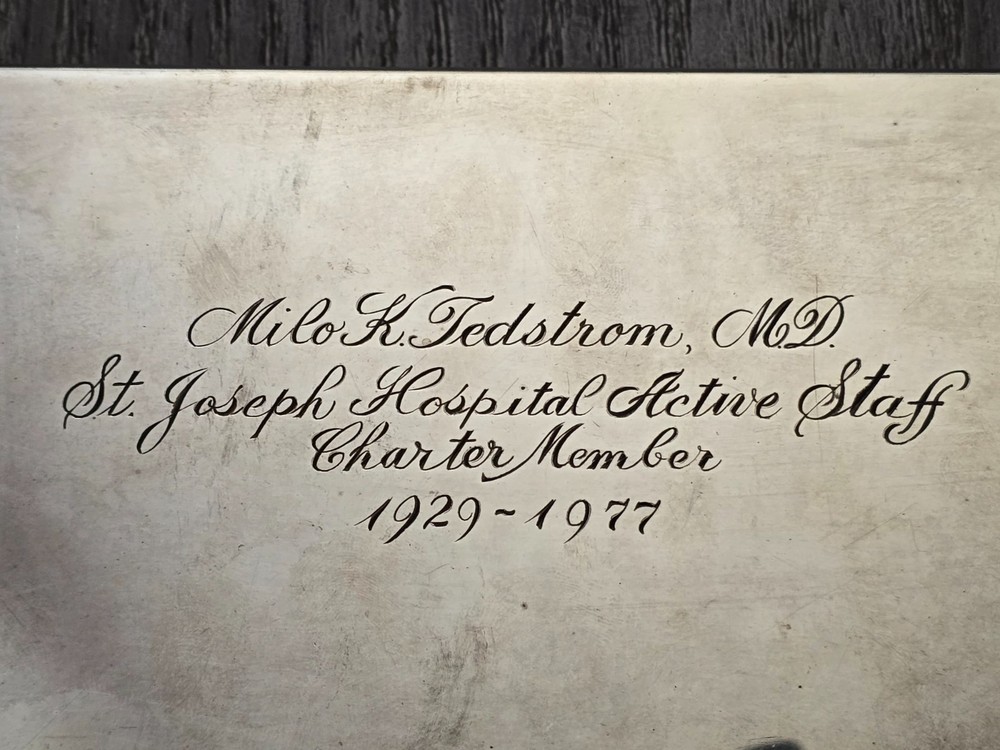 Milo K. Tedstrom, M.D.
St. Joseph Hospital Active Staff
Charter Member
1929~1977